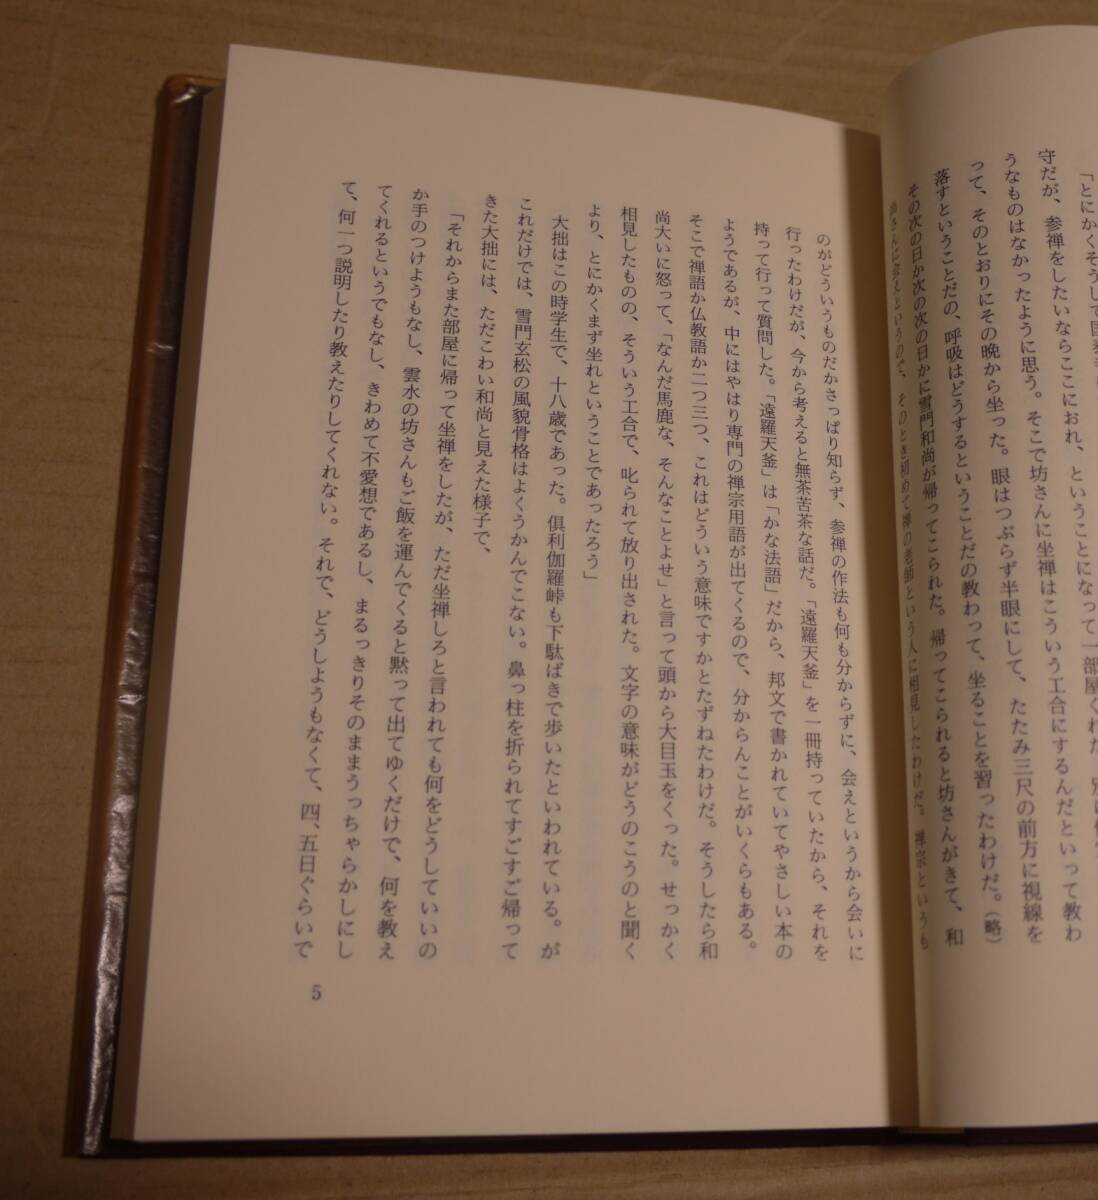 「とにかくそうして
ということになって一部屋くれた。
守だが、参禅をしたいならここにおれ、
うなものはなかったように思う。そこで坊さんに坐禅はこういう工合にするんだといって教わ
って、そのとおりにその晩から坐った。眼はつぶらず半眼にして、たたみ三尺の前方に視線を
落すということだの、呼吸はどうするということだの教わって、坐ることを習ったわけだ。（略）
その次の日か次の次の日かに雪門和尚が帰ってこられた。帰ってこられると坊さんがきて、和
尚さんに会えというので、そのとき初めて禅の老師という人に相見したわけだ。禅宗というも
のがどういうものだかさっぱり知らず、参禅の作法も何も分からずに、会えというから会いに
行ったわけだが、今から考えると無茶苦茶な話だ。「遠羅天釜」を一冊持っていたから、それを
持って行って質問した。「遠羅天釜」は「かな法語」だから、邦文で書かれていてやさしい本の
ようであるが、中にはやはり専門の禅宗用語が出てくるので、分からんことがいくらもある。
そこで禅語か仏教語か二つ三つ、これはどういう意味ですかとたずねたわけだ。そうしたら和
尚大いに怒って、「なんだ馬鹿な、そんなことよせ」と言って頭から大目玉をくった。せっかく
相見したものの、そういう工合で、叱られて放り出された。文字の意味がどうのこうのと聞く
より、とにかくまず坐れということであったろう」
大拙はこの時学生で、十八歳であった。倶利伽羅峠も下駄ばきで歩いたといわれている。が
これだけでは、雪門玄松の風貌骨格はよくうかんでこない。鼻っ柱を折られてすごすご帰って
きた大拙には、ただこわい和尚と見えた様子で、
「それからまた部屋に帰って坐禅をしたが、ただ坐禅しろと言われても何をどうしていいの
か手のつけようもなし、雲水の坊さんもご飯を運んでくると黙って出てゆくだけで、何を教え
てくれるというでもなし、きわめて不愛想であるし、まるっきりそのままうっちゃらかしにし
て、何一つ説明したり教えたりしてくれない。それで、どうしようもなくて、四、五日ぐらいで
5